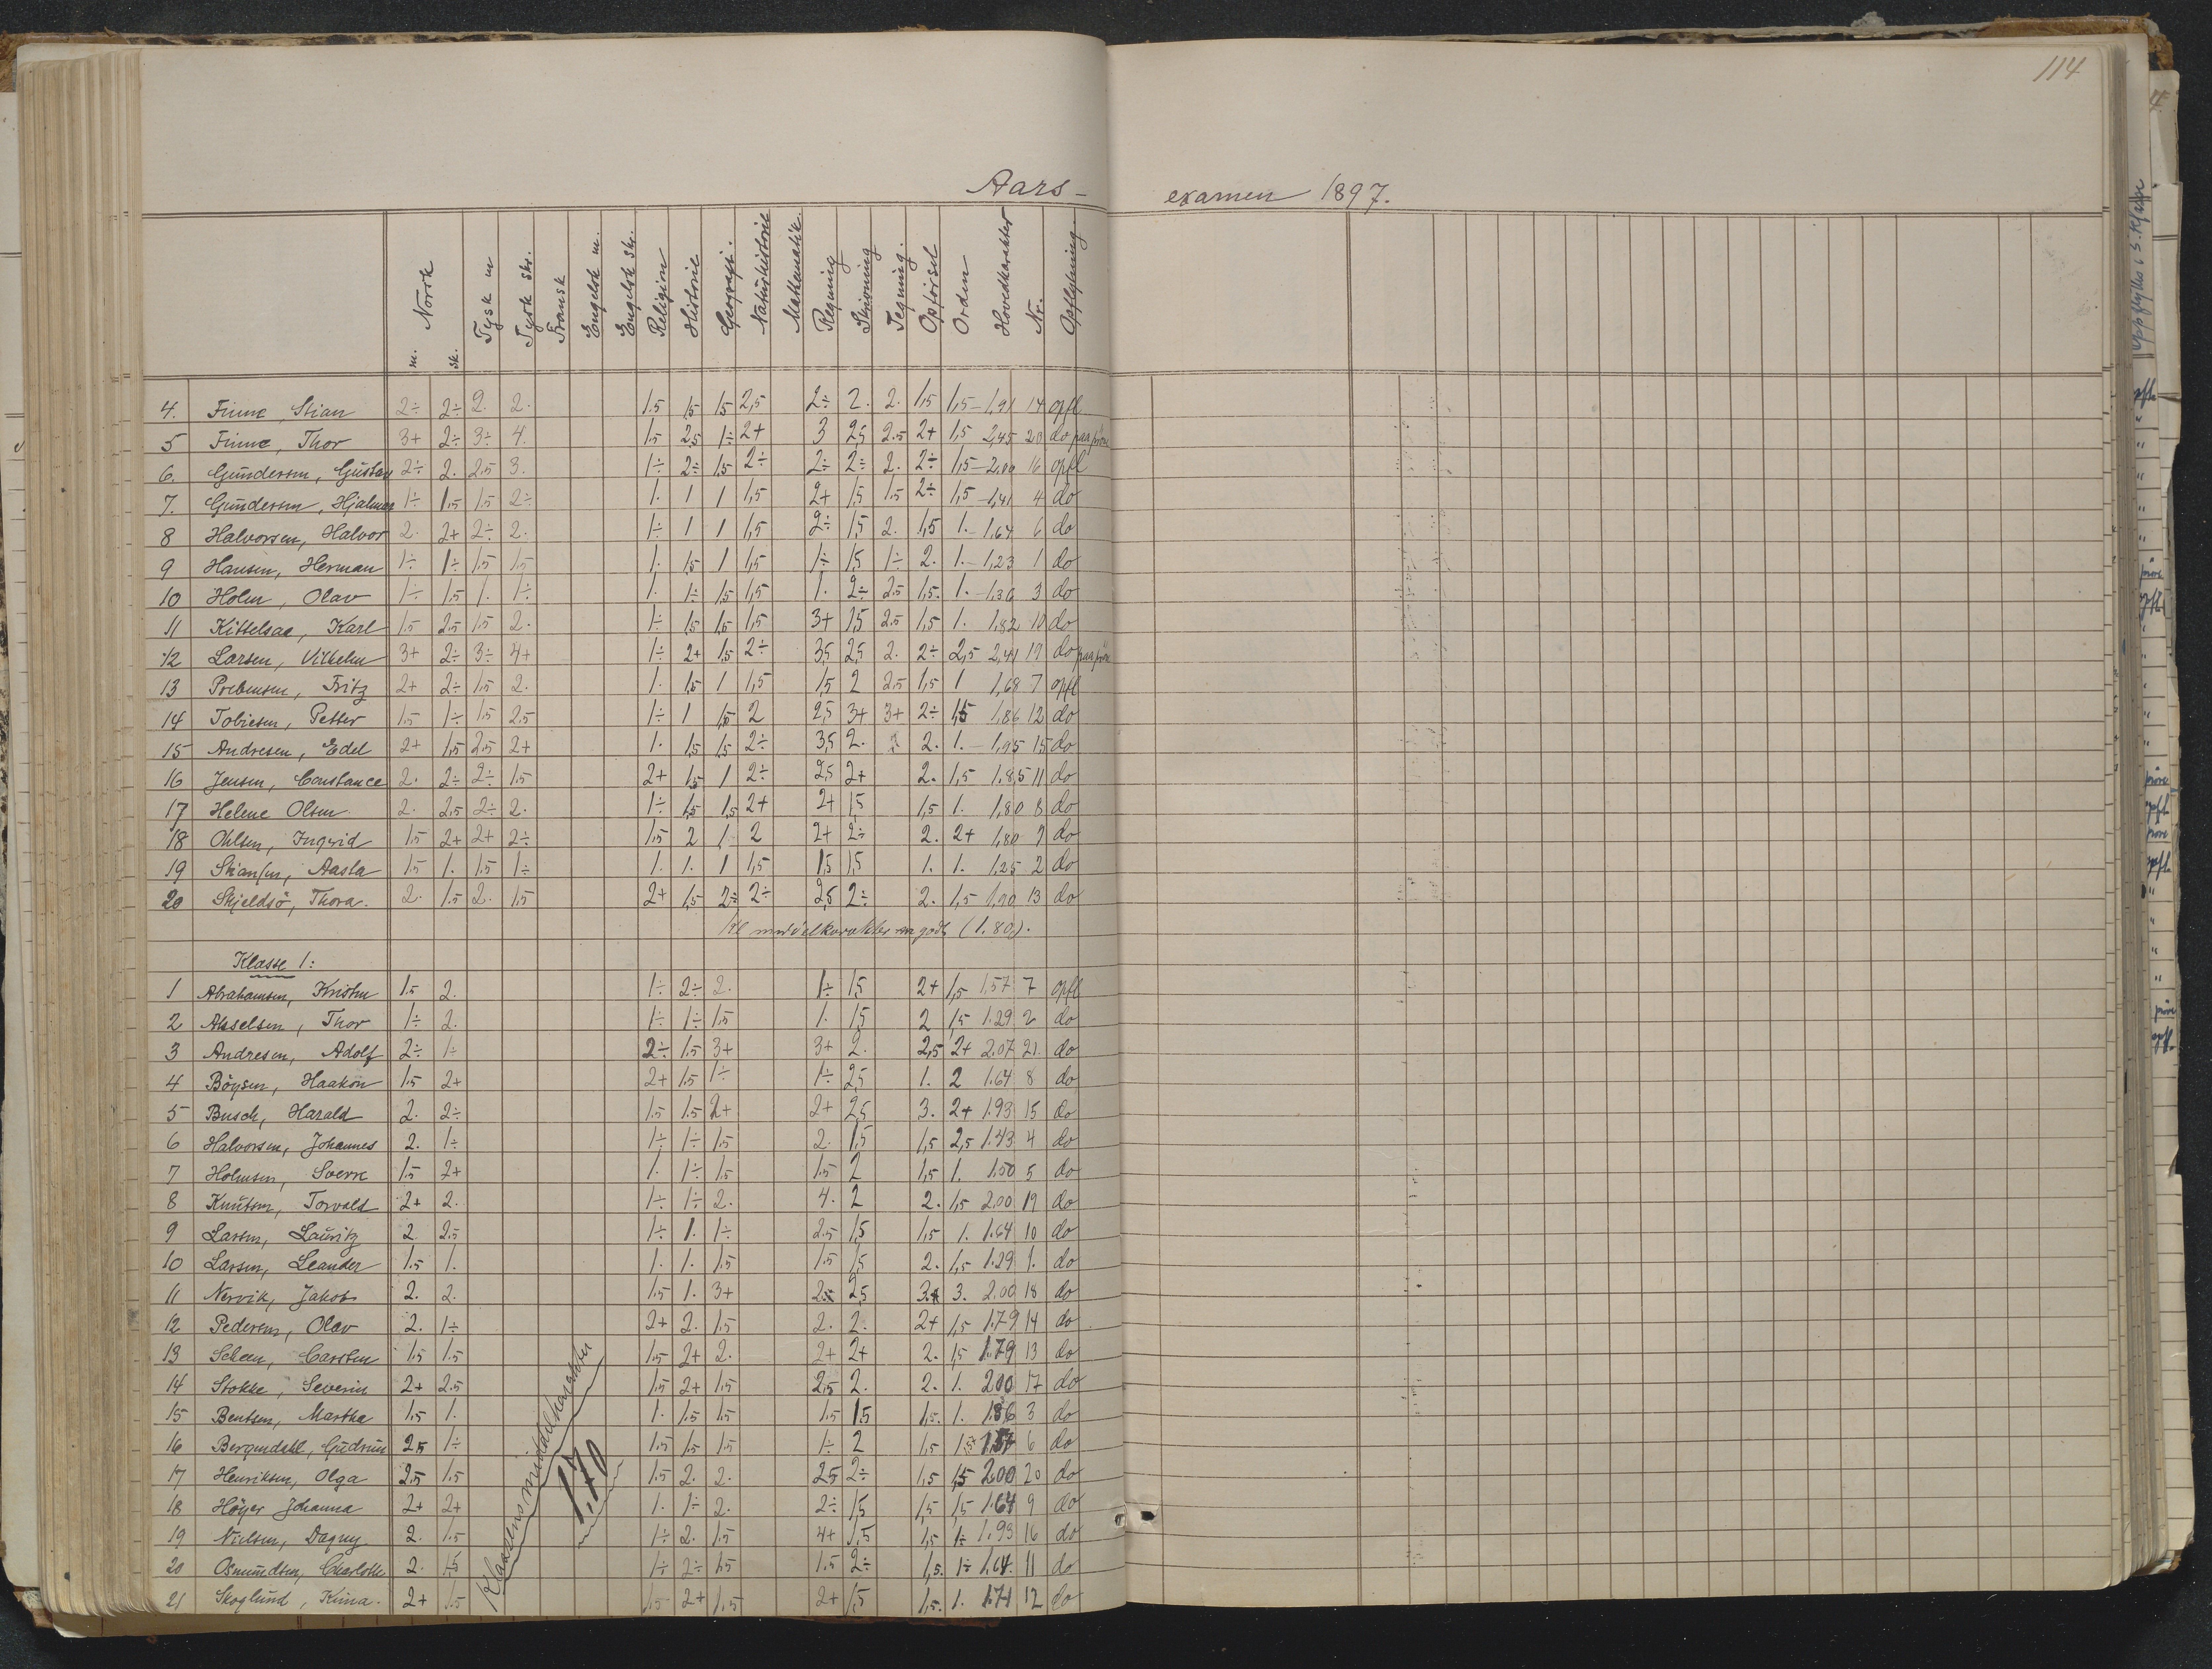 114
Aars- examen 1897.
Norsk m. sk. Tysk m Tysk skr. Fransk Engelsk m. Engelsk skr. Religion Historie Geografi. Naturhistorie Mathematik. Regning Skrivning Tegning. Opförsel Orden Hovedkarakter Nr. Opflytning
4. Finne, Stian 2÷ 2÷ 2. 2. 1.5 1,5 1,5 2,5 2÷ 2. 2. 1,5 1,5- 1,91 14 opfl
5 Finne, Thor 3+ 2÷ 3÷ 4. 1.5 2,5 1÷ 2+ 3 2,5 2.5 2+ 1,5 2,45 20 do paa pröve
6. Gundersen, Gustav 2÷ 2. 2.5 3. 1÷ 2÷ 1,5 2÷ 2÷ 2÷ 2. 2÷ 1,5- 2,00 16 opfl
7. Gundersen, Hjalmar 1÷ 1.5 1.5 2÷ 1. 1 1 1,5 2+ 1,5 1.5 2÷ 1,5 -1,41 4 do
8 Halvorsen, Halvor 2. 2+ 2÷ 2. 1÷ 1 1 1,5 2÷ 1,5 2. 1,5 1.- 1,64 6 do
9 Hansen, Herman 1÷ 1÷ 1.5 1.5 1. 1,5 1 1,5 1÷ 1,5 1÷ 2. 1.- 1,23 1 do
10 Holm, Olav 1÷ 1.5 1. 1÷ 1. 1÷ 1,5 1,5 1. 2÷ 2.5 1,5. 1. -1.36 3 do
11 Kittelsaa, Karl 1.5 2.5 1.5 2. 1÷ 1,5 1,5 1,5 3+ 1,5 2.5 1,5 1. 1,82 10 do
12 Larsen, Vilhelm 3+ 2÷ 3÷ 4+ 1÷ 2+ 1,5 2÷ 3,5 2,5 2. 2÷ 2,5 2,41 19 do paa pröve
13 Prebensen, Fritz 2+ 2÷ 1.5 2. 1. 1,5 1 1,5 1,5 2 2.5 1,5 1 1,68 7 opfl
14 Tobiesen, Petter 1.5 1÷ 1.5 2.5 1÷ 1 1,5 2 2,5 3+ 3+ 2÷ 1,5 1,86 12 do
15 Andresen, Edel 2+ 1.5 2.5 2+ 1. 1,5 1,5 2÷ 3,5 2. 2. 1.- 1,95 15 do
16 Jensen, Constance 2. 2÷ 2÷ 1.5 2+ 1,5 1 2÷ 2,5 2+ 2. 1,5 1.85 11 do
17 Helene Olsen 2. 2.5 2÷ 2. 1÷ 1,5 1,5 2+ 2+ 1,5 1,5 1. 1,80 8 do
18 Ohlsen, Ingrid 1.5 2+ 2+ 2÷ 1.5 2 1. 2 2+ 2÷ 2. 2+ 1,80 9 do
19 Skansen, Aasta 1.5 1. 1.5 1÷ 1. 1. 1 1,5 1,5 1,5 1. 1. 1.25 2 do
20 Skjeldsö, Thora. 2. 1.5 2. 1.5 2+ 1,5 2÷ 2÷ 2,5 2÷ 2. 1,5 1,90 13 do
Kl middelkarakter godt (1.80).
Klasse 1:
1 Abrahamsen, Kristen 1.5 2. 1÷ 2÷ 2. 1÷ 1,5 2+ 1,5 1,57 7 opfl
2 Akselsen, Thor 1÷ 2. 1÷ 1÷ 1.5 1. 1,5 2 1,5 1.29 2 do
3 Andresen, Adolf 2÷ 1÷ 2÷ 1.5 3+ 3+ 2. 2,5 2+ 2.07 21. do
4 Böysen, Haakon 1.5 2+ 2+ 1.5 1÷ 1÷ 2,5 1. 2 1.64 8 do
5 Busch, Harald 2. 2÷ 1.5 1.5 2+ 2+ 2,5 3. 2+ 1.93 15 do
6 Halvorsen, Johannes 2. 1÷ 1÷ 1÷ 1.5 2. 1,5 1,5 2,5 1.43 4 do
7 Holmsen, Sverre 1.5 2+ 1. 1÷ 1.5 1.5 2 1,5 1. 1.50 5 do
8 Knutsen, Torvald 2+ 2. 1÷ 1÷ 2. 4. 2 2. 1,5 2.00 19 do
9 Larsen, Lauritz 2. 2.5 1÷ 1. 1÷ 2.5 1,5 1,5 1. 1.64 10 do
10 Larsen, Leander 1.5 1. 1. 1. 1.5 1.5 1,5 2. 1,5 1.29 1. do
11 Nervik, Jakob 2. 2. 1.5 1. 3+ 2÷ 2,5 3. 3. 2.00 18 do
12 Pedersen, Olav 2. 1÷ 2+ 2. 1.5 2. 2. 2+ 1,5 1.79 14 do
13 Scheen, Carsten 1.5 1.5 1.5 2+ 2. 2+ 2+ 2. 1,5 1.79 13 do
14 Stokke, Severin 2+ 2.5 1.5 2+ 1.5 2,5 2. 2. 1. 2.00 17 do
15 Bentsen, Martha 1.5 1. 1. 1.5 1.5 1.5 1.5 1,5. 1. 1.36 3 do
16 Bergendahl, Gudrun 2.5 1÷ 1.5 1.5 1.5 1÷ 2 1,5 1,5+ 1,57 6 do
17 Henriksen, Olga 2.5 1.5 1.5 2. 2. 2.5 2÷ 1,5 1,5 2.00 20 do
18 Höyer Johanna 2+ 2+ 1. 1÷ 2. 2÷ 1,5 1,5 1,5 1.64 9 do
19 Nielsen, Dagny 2. 1.5 1÷ 2. 1.5 4+ 1,5 1,5 1÷ 1.93 16 do
20 Osmundsen, Charlotte 2. 1.5 1÷ 2÷ 1.5 1.5 2÷ 1,5. 1÷ 1.64. 11 do
21 Skoglund, Kima. 2+ 1.5 1.5 2+ 1.5 2+ 1,5 1,5. 1. 1.71 12 do
Klassens middelkarakter
1.70